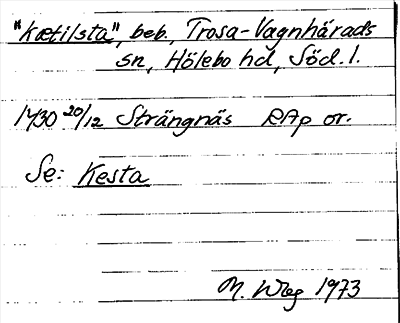 "Kætilsta", beb., Trosa-Vagnhärads
sn, Hölebo hd, Söd. l.
1430 20/12 Strängnäs RAp or.
Se: Kesta
M. Wbg 1973